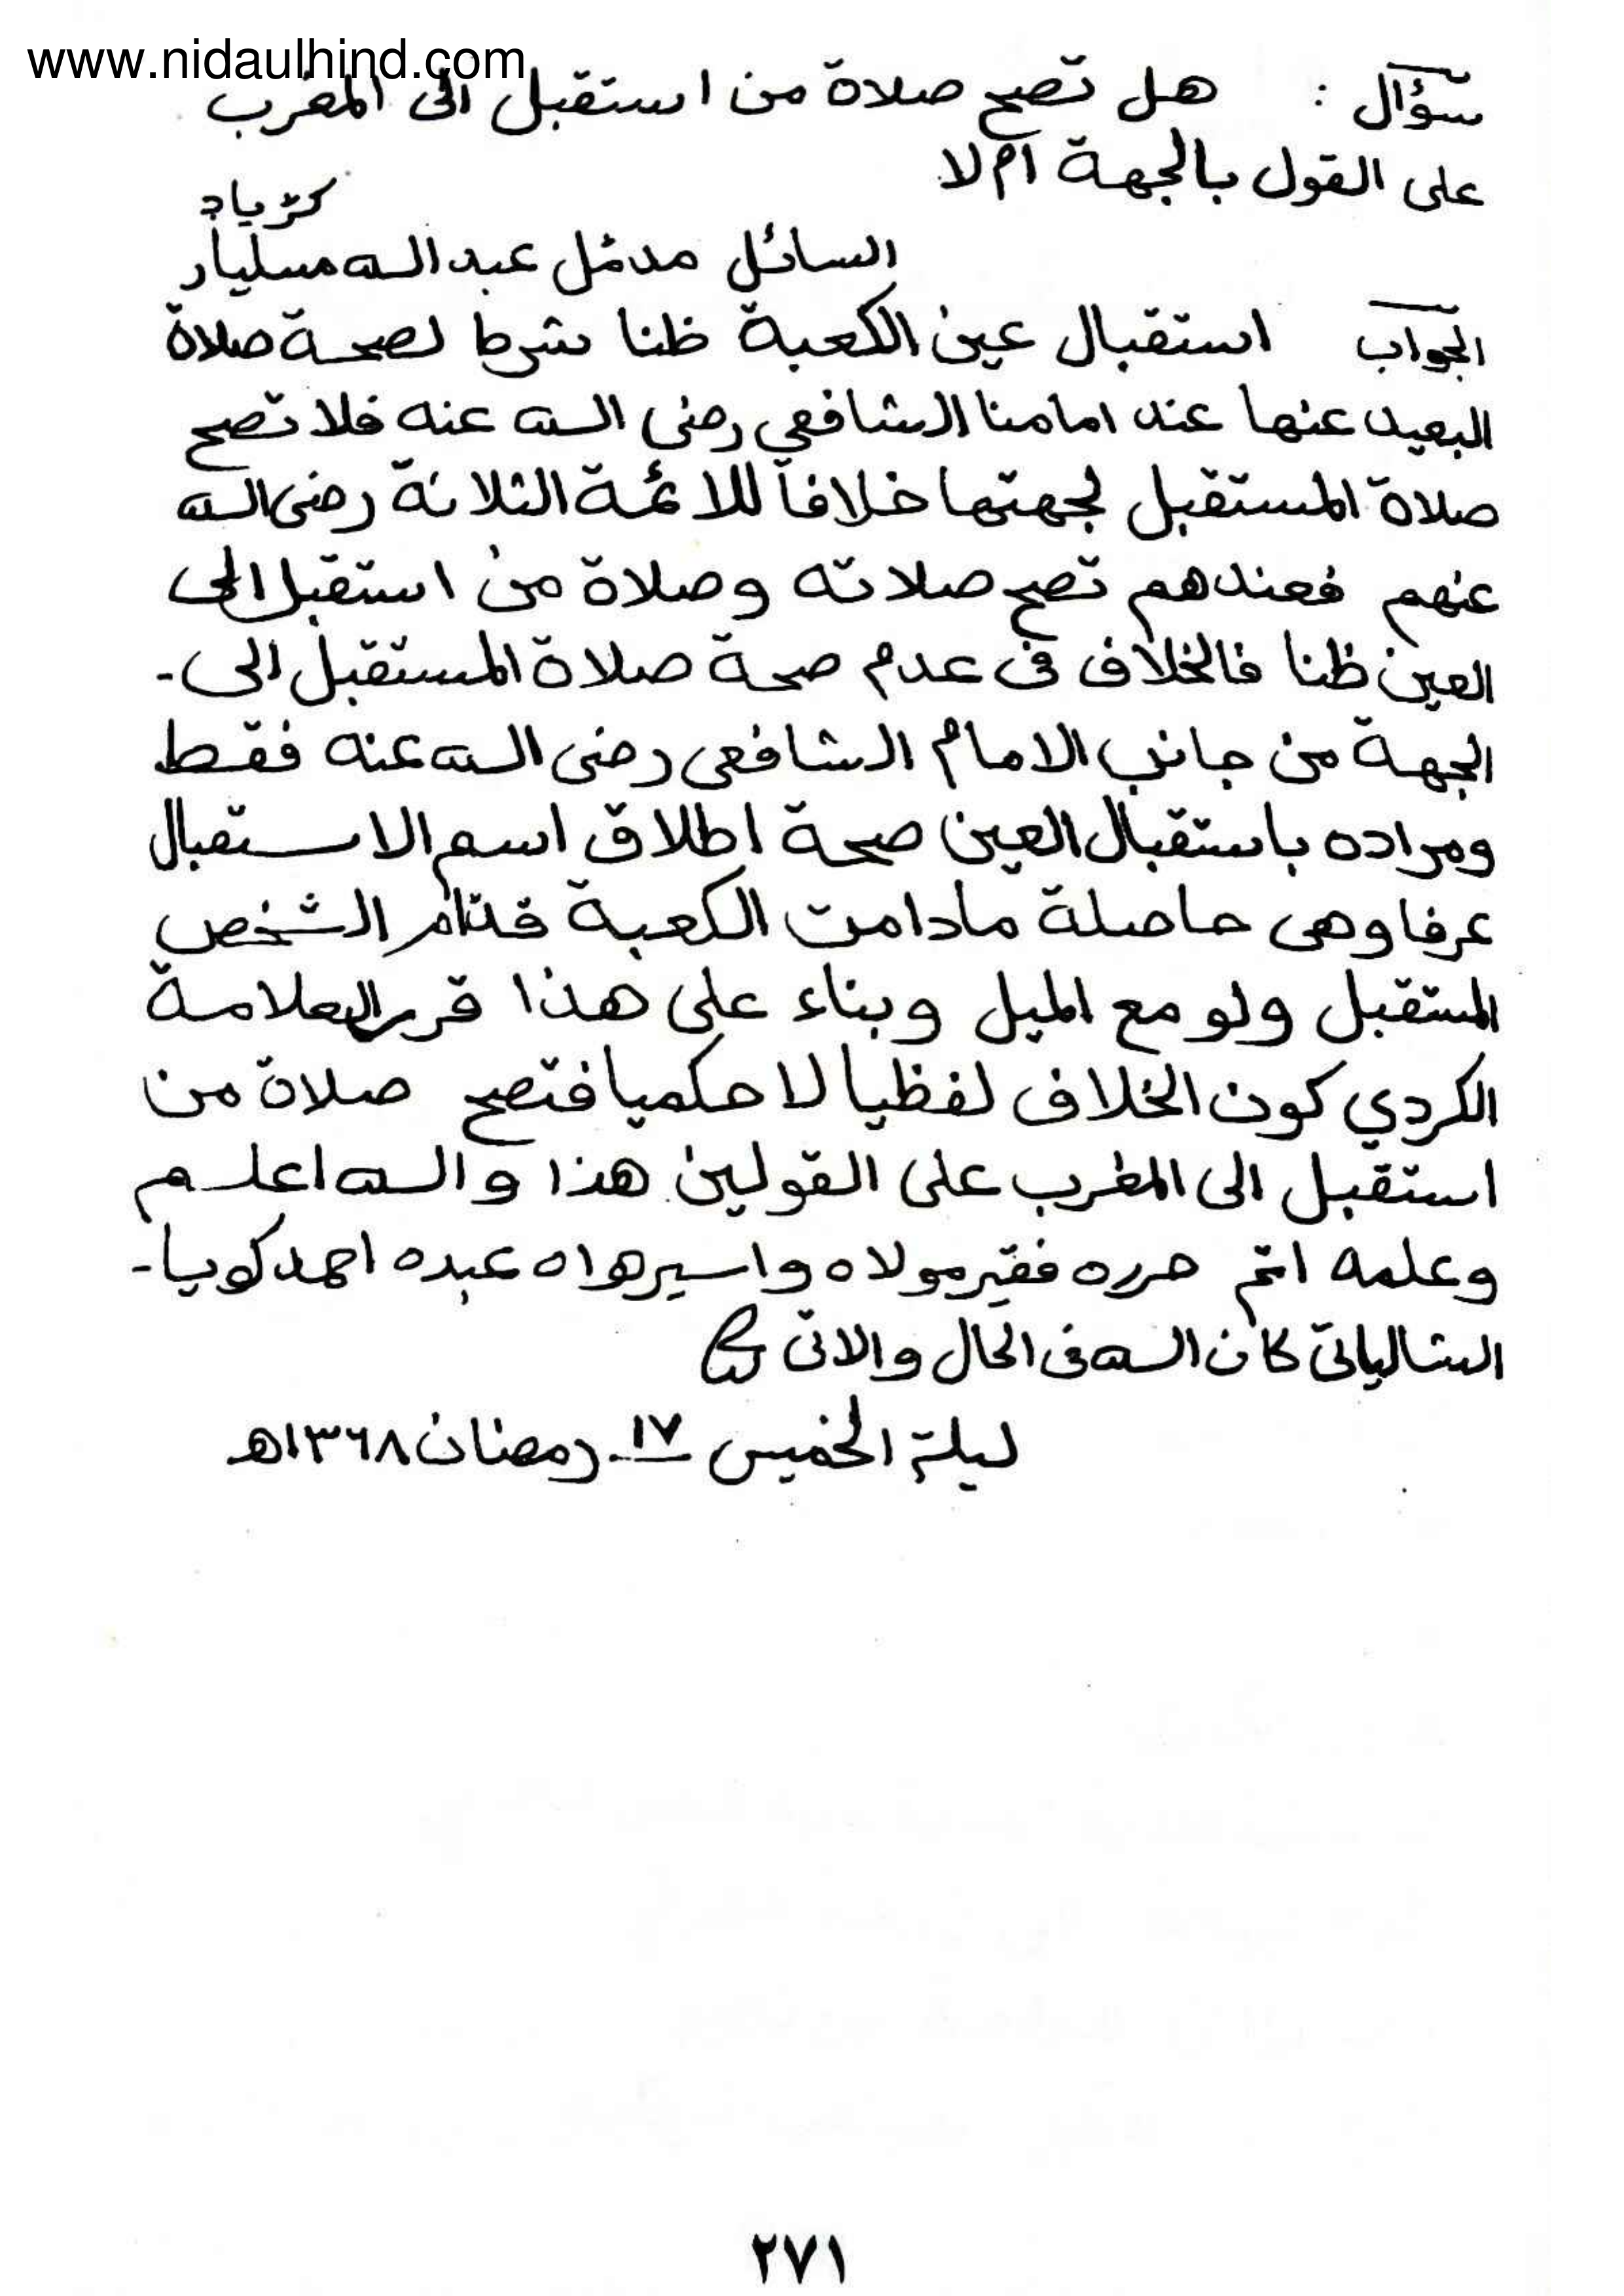 www.nidaulhind.com
سؤال : هل تصح صلاة من استقبل الى المغرب
على القول بالجهة ام لا
كڑياڊ
السائل مدمل عبد الله مسليار
الجواب استقبال عين الكعبة ظنا شرط لصحة صلاة
البعيد عنها عند امامنا الشافعي رضى الله عنه فلا تصح
صلاة المستقبل لجهتها خلافا للائمة الثلاثة رضى الله
عنهم فعندهم تصح صلاته وصلاة من استقبل الى
العين ظنا فالخلاف فى عدم صحة صلاة المستقبل الى -
الجهة من جانب الامام الشافعى رضى الله عنه فقط
ومراده باستقبال العين صحة اطلاق اسم الاستقبال
عرفا وهى حاصلة مادامت الكعبة قدام الشخص
المستقبل ولو مع الميل وبناء على هذا قرر العلامة
الكردي كون الخلاف لفظيا لا حكميا فتصح صلاة من
استقبل الى المغرب على القولين هذا والله اعلم
وعلمه اتم حرره فقير مولاه واسير هواه عبده احمد كويا -
الشالياتى كان الله فى الحال والاتى
ليلة الخميس ١٧ رمضان ١٣٦٨هـ
٢٧١